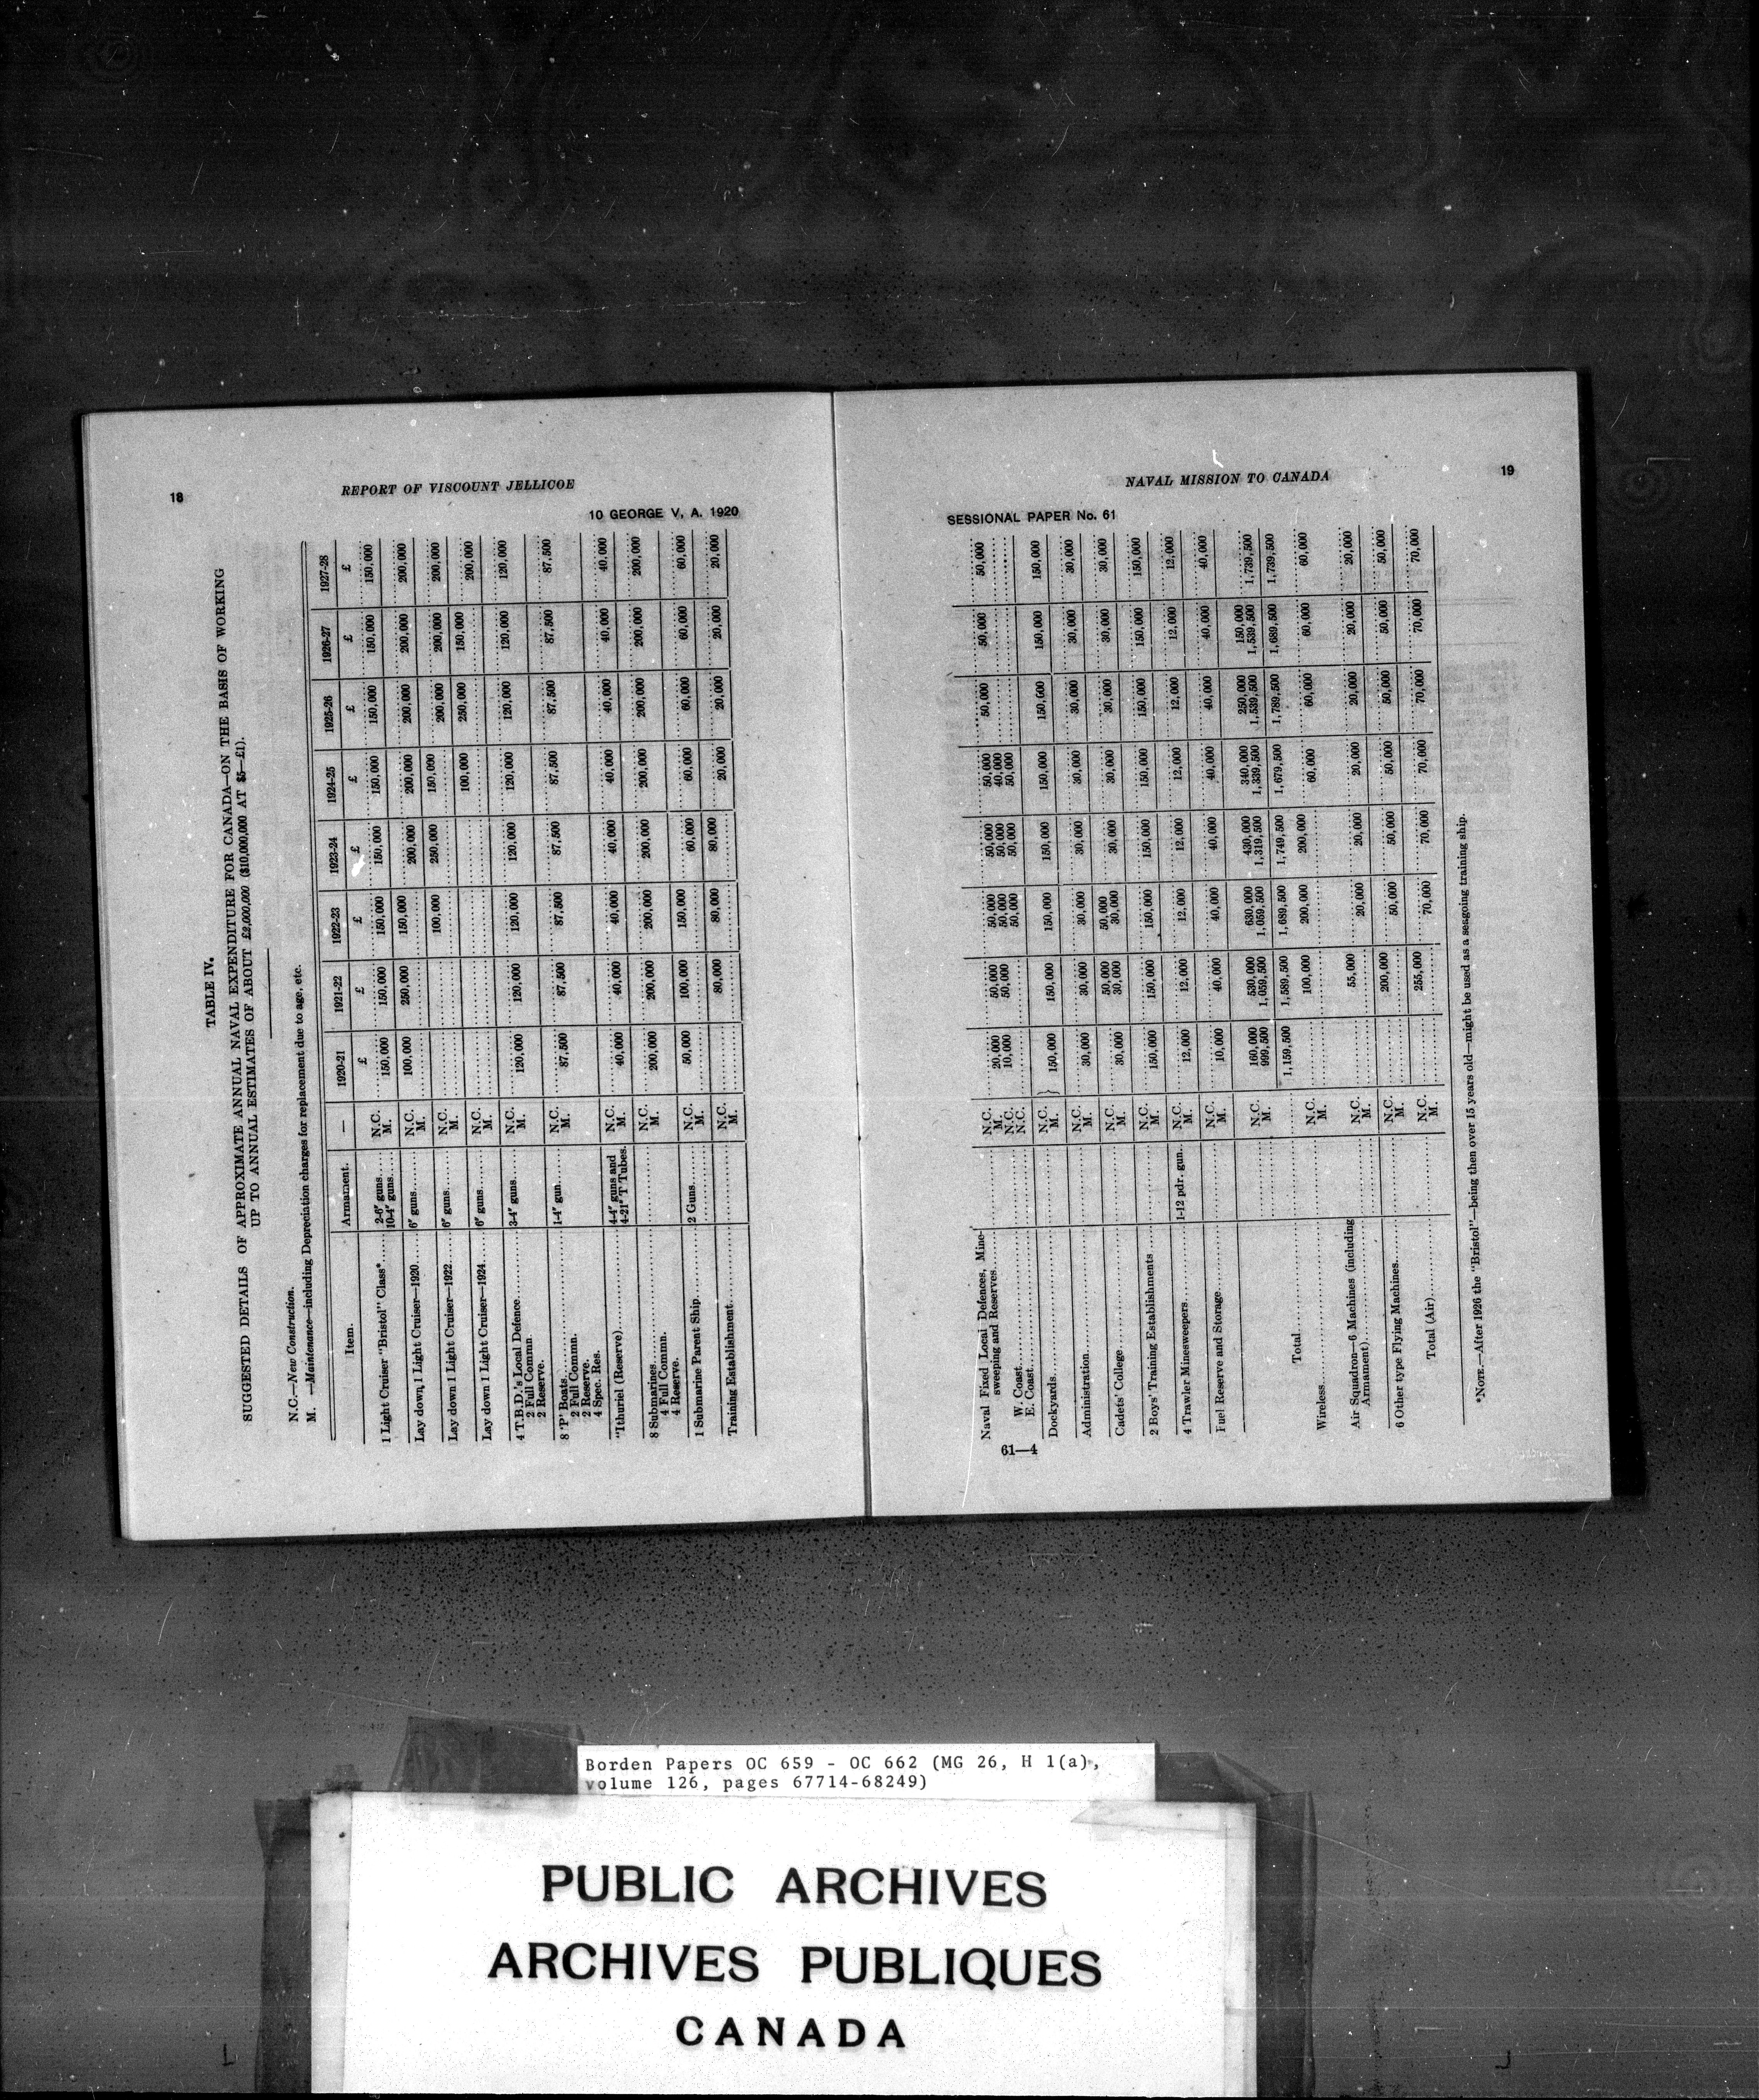 18
REPORT OF VISCOUNT JELLICOE
10 GEORGE V, A. 1920
TABLE IV.
SUGGESTED DETAILS OF APPROXIMATE ANNUAL NAVAL EXPENDITURE FOR CANADA—ON THE BASIS OF WORKING
UP TO ANNUAL ESTIMATES OF ABOUT £2,000,000 ($10,000,000 AT $5—£1).
N.C.—New Construction.
M. —Maintenance—including Depreciation charges for replacement due to age, etc.
Item. Armament. — 1920-21 1921-22 1922-23 1923-24 1924-25 1925-26 1926-27 1927-28
£ £ £ £ £ £ £ £
2-6" guns..... N.C.
1 Light Cruiser "Bristol" Class*...... 10-4" guns.... M. 150,000 150,000 150,000 150,000 150,000 150,000 150,000 150,000
Lay down 1 Light Cruiser—1920.... 6" guns........ N.C. 100,000 250,000 150,000
M. 200,000 200,000 200,000 200,000 200,000
Lay down 1 Light Cruiser—1922.... 6" guns........ N.C. 100,000 250,000 150,000
M. 200,000 200,000 200,000
Lay down 1 Light Cruiser—1924.... 6" guns........ N.C. 100,000 250,000 150,000
M. 200,000
4 T.B.D.'s Local Defence.......... 3-4" guns...... N.C.
2 Full Commn M. 120,000 120,000 120,000 120,000 120,000 120,000 120,000 120,000
2 Reserve.
8 'P' Boats.............. 1-4" gun....... N.C.
2 Full Commn. M. 87,500 87,500 87,500 87,500 87,500 87,500 87,500 87,500
2 Reserve.
4 Spec. Res.
"Ithuriel (Reserve)................ 4-4" guns and N.C.
4-21" T Tubes. M. 40,000 40,000 40,000 40,000 40,000 40,000 40,000 40,000
8 Submarines.................. N.C.
4 Full Commn. M. 200,000 200,000 200,000 200,000 200,000 200,000 200,000 200,000
4 Reserve.
1 Submarine Parent Ship............ 2 Guns......... N.C. 50,000 100,000 150,000
M. 60,000 60,000 60,000 60,000 60,000
Training Establishment............ N.C. 80,000 80,000 80,000
M. 20,000 20,000 20,000 20,000
NAVAL MISSION TO CANADA
19
SESSIONAL PAPER No. 61
Naval Fixed Local Defences, Mine- N.C.
sweeping and Reserves......... M. 20,000 50,000 50,000 50,000 50,000 50,000 50,000 50,000
W. Coast............ N.C. 10,000 50,000 50,000 50,000 40,000
E. Coast............ N.C. 50,000 50,000 50,000
Dockyards................. N.C.
M. 150,000 150,000 150,000 150,000 150,000 150,000 150,000 150,000
Administration................. N.C.
M. 30,000 30,000 30,000 30,000 30,000 30,000 30,000 30,000
Cadets' College................. N.C. 50,000 50,000
M. 30,000 30,000 30,000 30,000 30,000 30,000 30,000 30,000
2 Boys' Training Establishments ...... N.C.
M. 150,000 150,000 150,000 150,000 150,000 150,000 150,000 150,000
4 Trawler Minesweepers............ 1-12 pdr. gun.. N.C.
M. 12,000 12,000 12,000 12,000 12,000 12,000 12,000 12,000
Fuel Reserve and Storage............ N.C.
M. 10,000 40,000 40,000 40,000 40,000 40,000 40,000 40,000
N.C. 160,000 530,000 630,000 430,000 340,000 250,000 150,000
M. 999,500 1,059,500 1,059,500 1,319,500 1,339,500 1,539,500 1,539,500 1,739,500
Total................ 1,159,500 1,589,500 1,689,500 1,749,500 1,679,500 1,789,500 1,689,500 1,739,500
Wireless................. N.C. 100,000 200,000 200,000
M. 60,000 60,000 60,000 60,000
Air Squadron—6 Machines (including N.C. 55,000
Armament)................ M. 20,000 20,000 20,000 20,000 20,000 20,000
6 Other type Flying Machines.......... N.C. 200,000
M. 50,000 50,000 50,000 50,000 50,000 50,000
Total (Air)............. N.C. 255,000
M. 70,000 70,000 70,000 70,000 70,000 70,000
*NOTE.—After 1926 the "Bristol"—being then over 15 years old—might be used as a seagoing training ship.
61—4
Borden Papers OC 659 - OC 662 (MG 26, H 1(a),
volume 126, pages 67714-68249)
PUBLIC ARCHIVES
ARCHIVES PUBLIQUES
CANADA